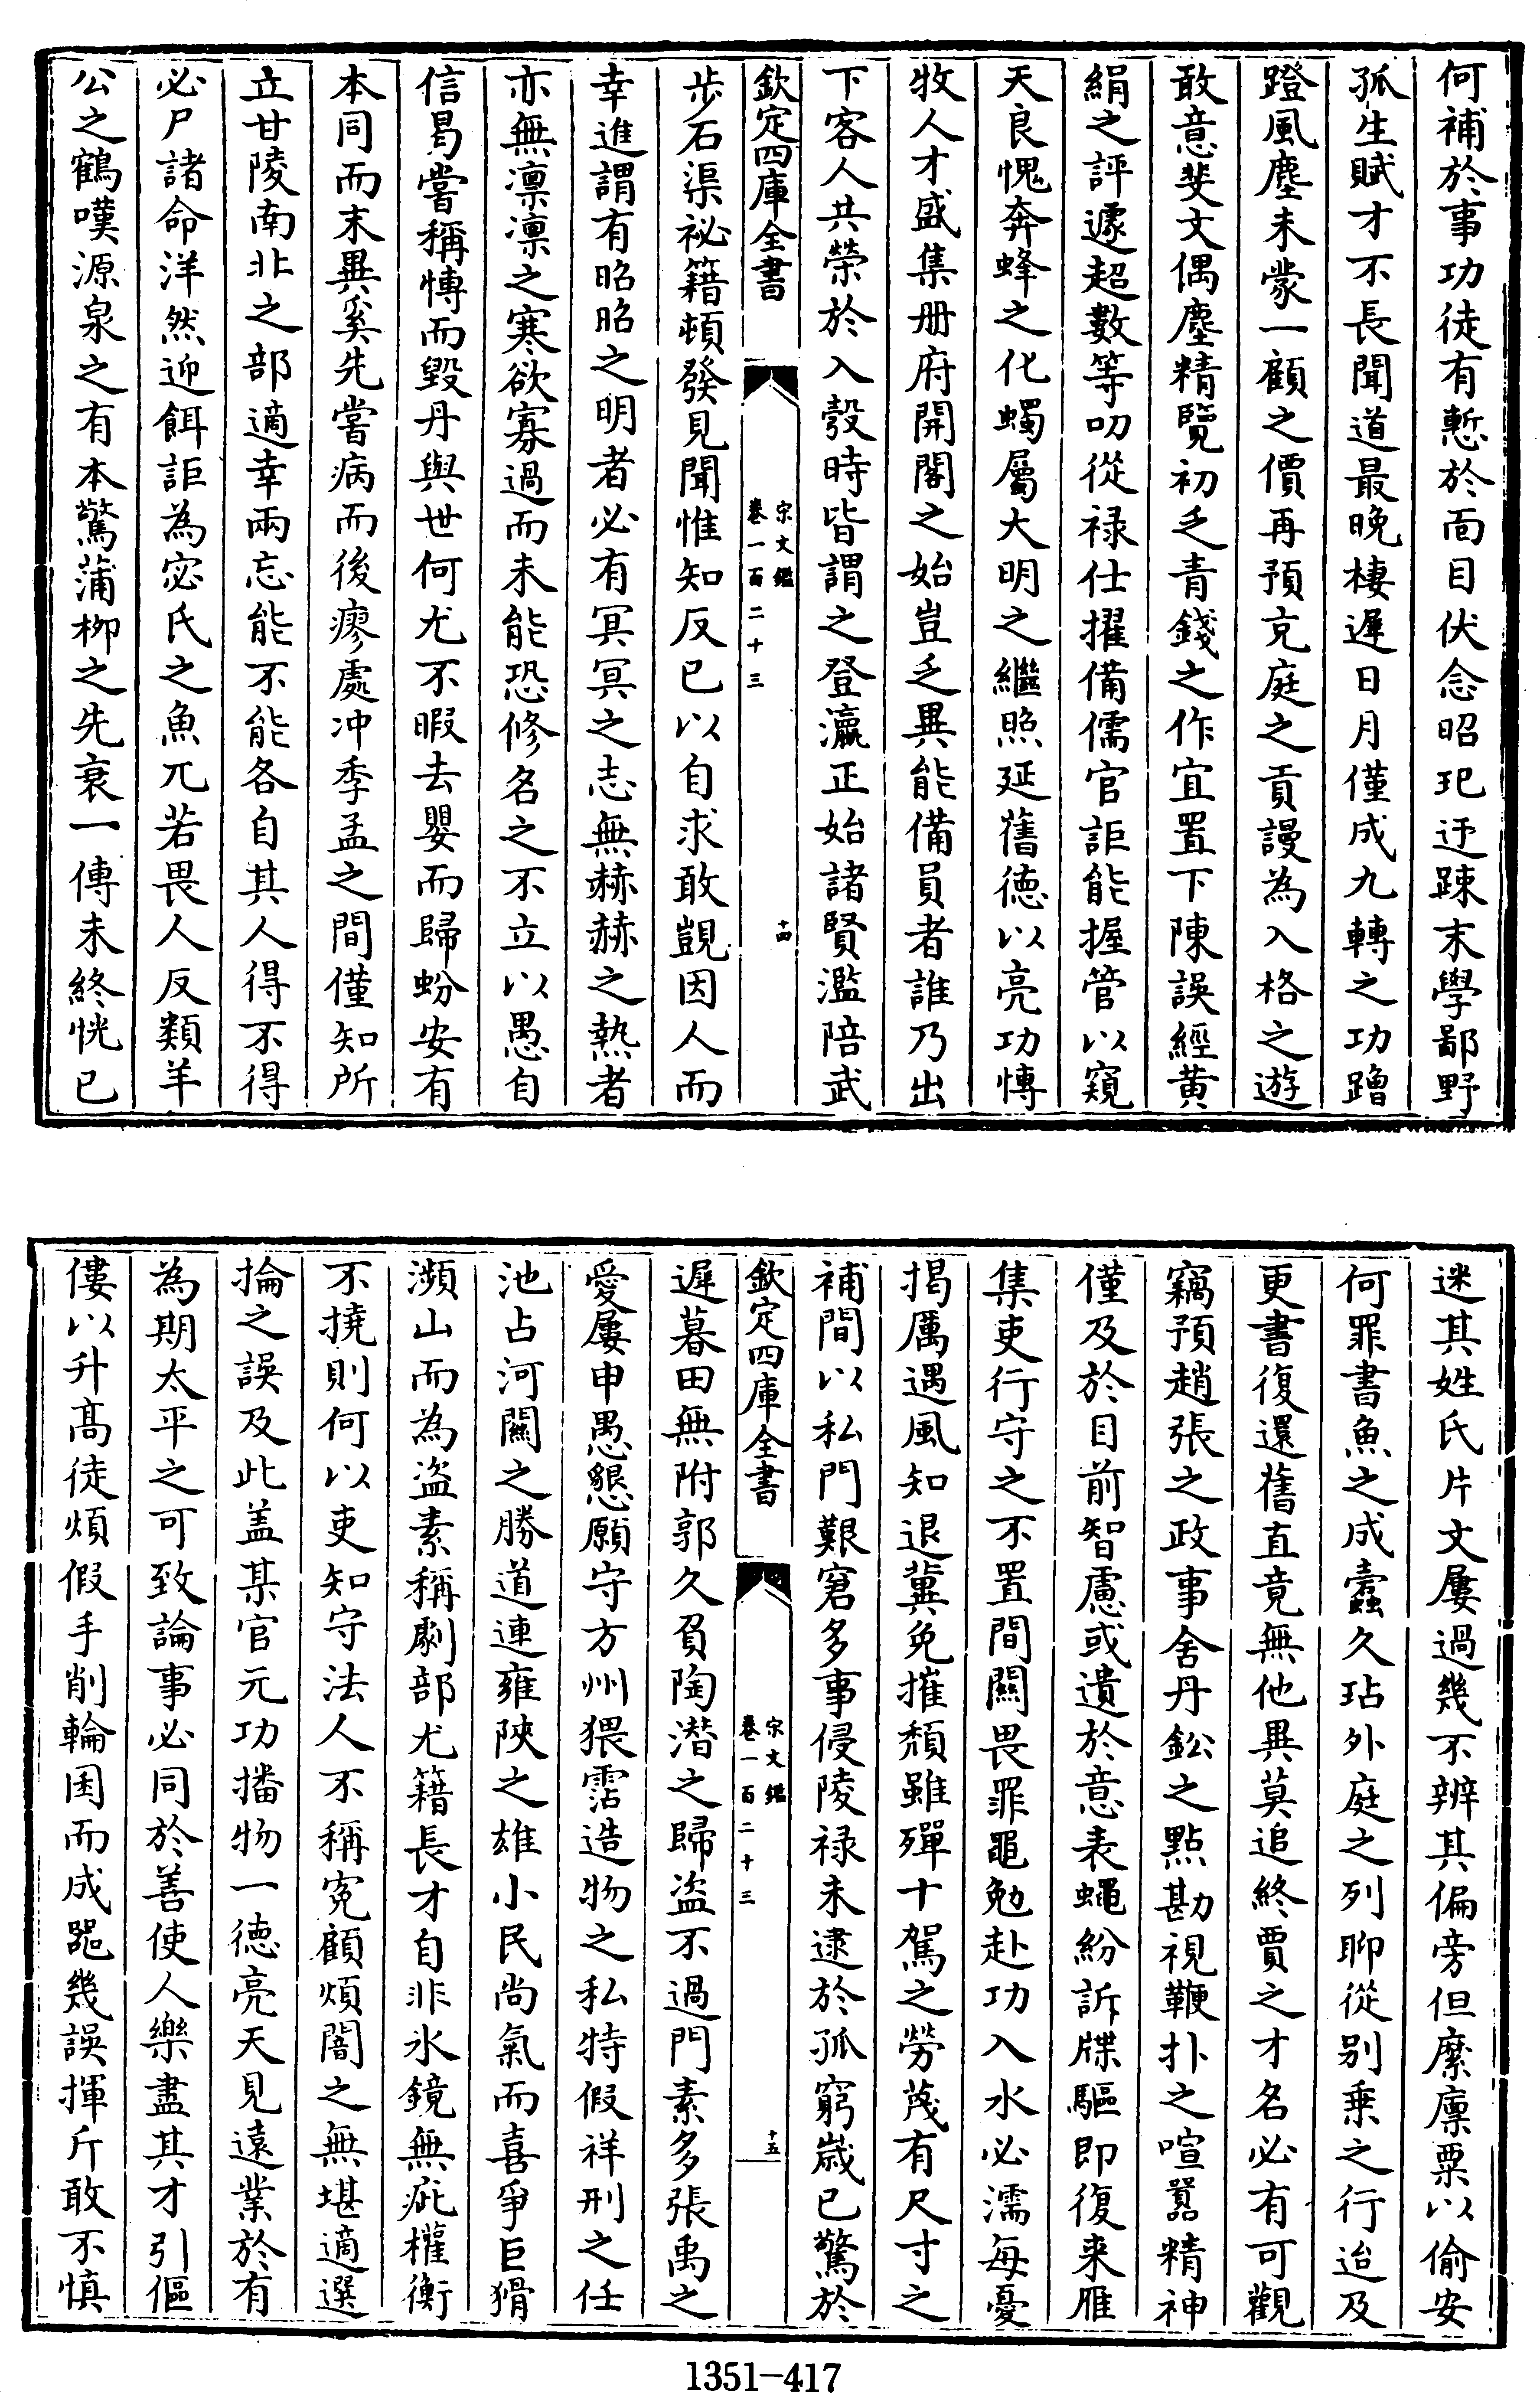 何補於事功徒有慙於面目伏念昭玘迂踈末學鄙野
孤生賦才不長聞道最晚棲遲日月僅成九轉之功蹭
蹬風塵未蒙一顧之價再預充庭之貢謾為入格之遊
敢意斐文偶塵精覽初乏青錢之作宜置下陳誤經黄
絹之評遽超數等叨從禄仕擢備儒官詎能握管以窺
天良愧奔蜂之化蠋屬大明之繼照延舊徳以亮功慱
牧人才盛集册府開閣之始豈乏異能備員者誰乃出
下客人共榮於入彀時皆謂之登瀛正始諸賢濫陪武
欽定四庫全書
宋文鑑
卷一百二十三
十四
步石渠祕籍頓發見聞惟知反已以自求敢覬因人而
幸進謂有昭昭之明者必有冥冥之志無赫赫之熱者
亦無凛凛之寒欲寡過而未能恐修名之不立以愚自
信曷嘗稱慱而毀丹與世何尤不暇去嬰而歸蚡安有
本同而末異奚先嘗病而後瘳處冲季孟之間僅知所
立甘陵南北之部適幸兩忘能不能各自其人得不得
必尸諸命洋然迎餌詎為宓氏之魚兀若畏人反類羊
公之鶴嘆源泉之有本驚蒲柳之先衰一傳未終恍已
迷其姓氏片文屢過幾不辨其偏旁但縻廪粟以偷安
何罪書魚之成蠧久玷外庭之列聊從别乗之行迨及
更書復還舊直竟無他異莫追終賈之才名必有可觀
竊預趙張之政事舍丹鈆之點勘視鞭扑之喧囂精神
僅及於目前智慮或遺於意表蠅紛訴牒驅即復来雁
集吏行守之不置間關畏罪黽勉赴功入水必濡每憂
揭厲遇風知退冀免摧頽雖殫十駕之勞蔑有尺寸之
補間以私門艱窘多事侵陵禄未逮於孤窮嵗已驚於
欽定四庫全書
宋文鑑
卷一百二十三
十五
遲暮田無附郭久負陶潜之歸盜不過門素多張禹之
愛屢申愚懇願守方州猥霑造物之私特假祥刑之任
池占河關之勝道連雍陜之雄小民尚氣而喜爭巨猾
瀕山而為盗素稱劇部尤籍長才自非氷鏡無疵權衡
不撓則何以吏知守法人不稱寃顧煩闇之無堪適選
掄之誤及此盖某官元功播物一徳亮天見遠業於有
為期太平之可致論事必同於善使人樂盡其才引傴
僂以升髙徒煩假手削輪囷而成器幾誤揮斤敢不慎
1351-417